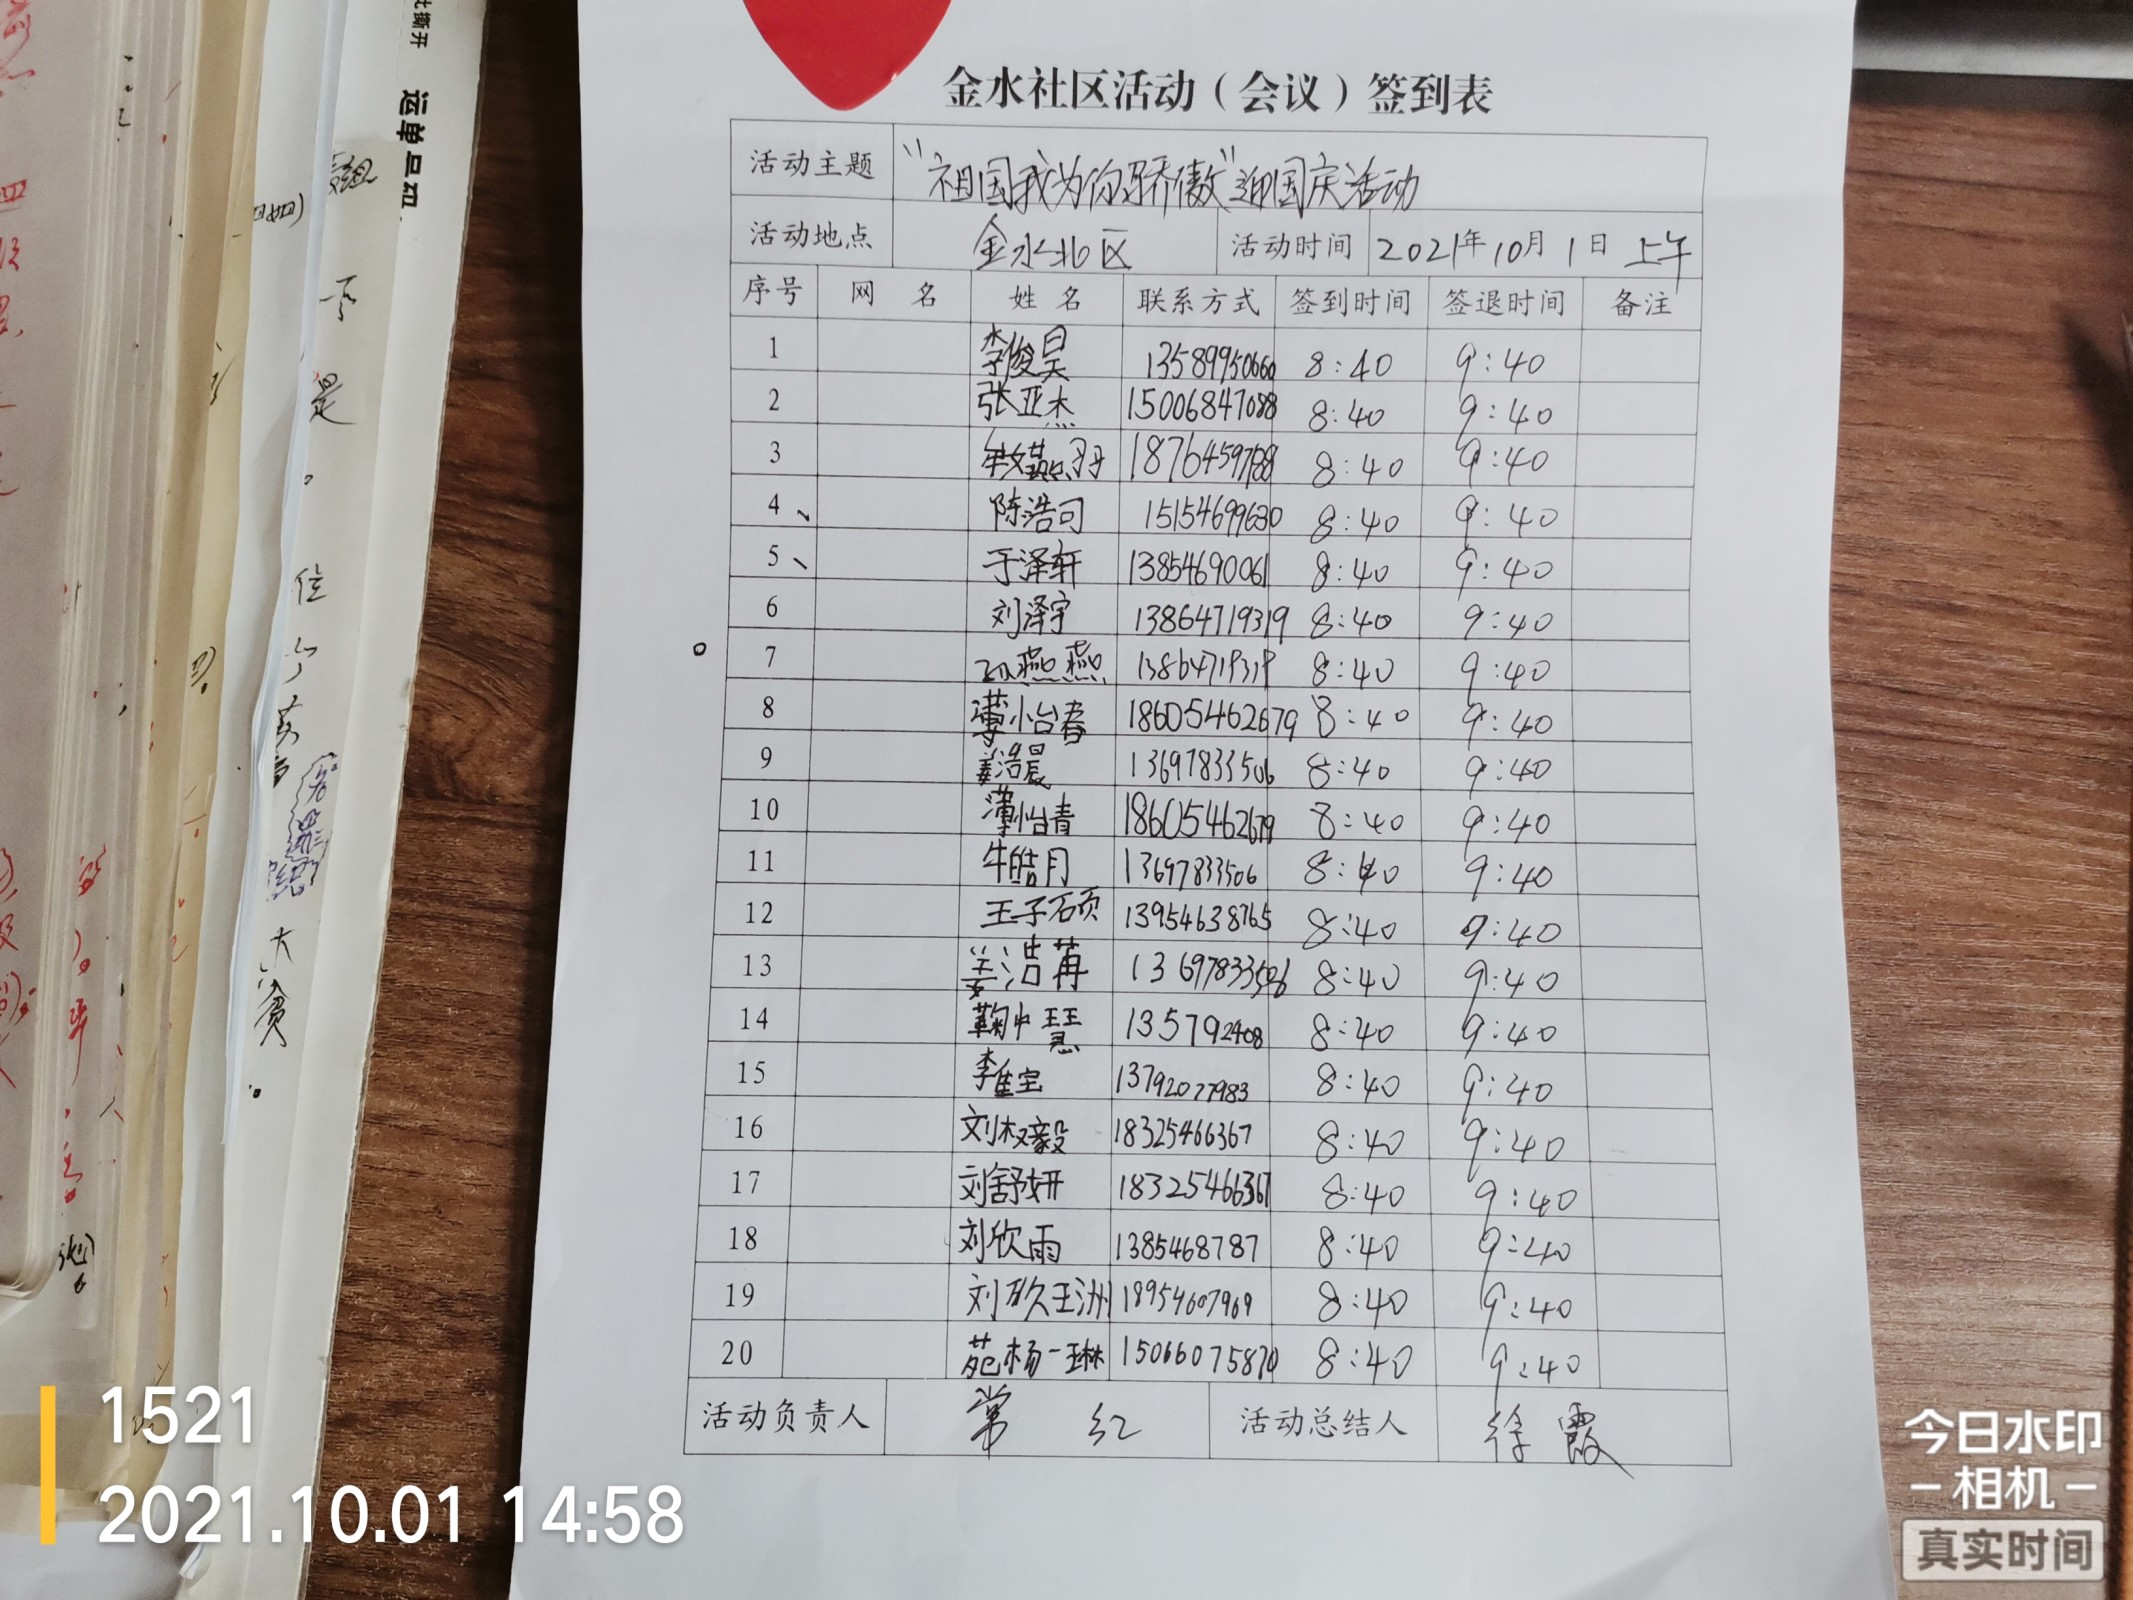 金水社区活动（会议）签到表
活动主题 “祖国我为你骄傲”迎国庆活动
活动地点 金水北区 活动时间 2021年10月1日 上午
序号 网名 姓名 联系方式 签到时间 签退时间 备注
1 李俊昊 13589950660 8:40 9:40
2 张亚杰 15006847088 8:40 9:40
3 18764597188 8:40 9:40
4 陈浩司 15154699630 8:40 9:40
5 于泽轩 13854690061 8:40 9:40
6 刘泽宇 13864719319 8:40 9:40
7 孙燕燕 13864719319 8:40 9:40
8 薄怡春 18605462679 8:40 9:40
9 姜浩晨 13697833506 8:40 9:40
10 薄怡青 18605462679 8:40 9:40
11 牛皓月 13697833506 8:40 9:40
12 王子硕 13954638765 8:40 9:40
13 姜浩苒 13697833506 8:40 9:40
14 鞠中慧 135792408 8:40 9:40
15 李隹宝 13792077983 8:40 9:40
16 刘权毅 18325466367 8:40 9:40
17 刘舒妍 18325466367 8:40 9:40
18 刘欣雨 1385468787 8:40 9:40
19 刘玖洲 18954607969 8:40 9:40
20 苑杨一琳 15066075870 8:40 9:40
活动负责人 常红 活动总结人 徐霞
运单号码
1521
2021.10.01 14:58
今日水印
-相机-
真实时间